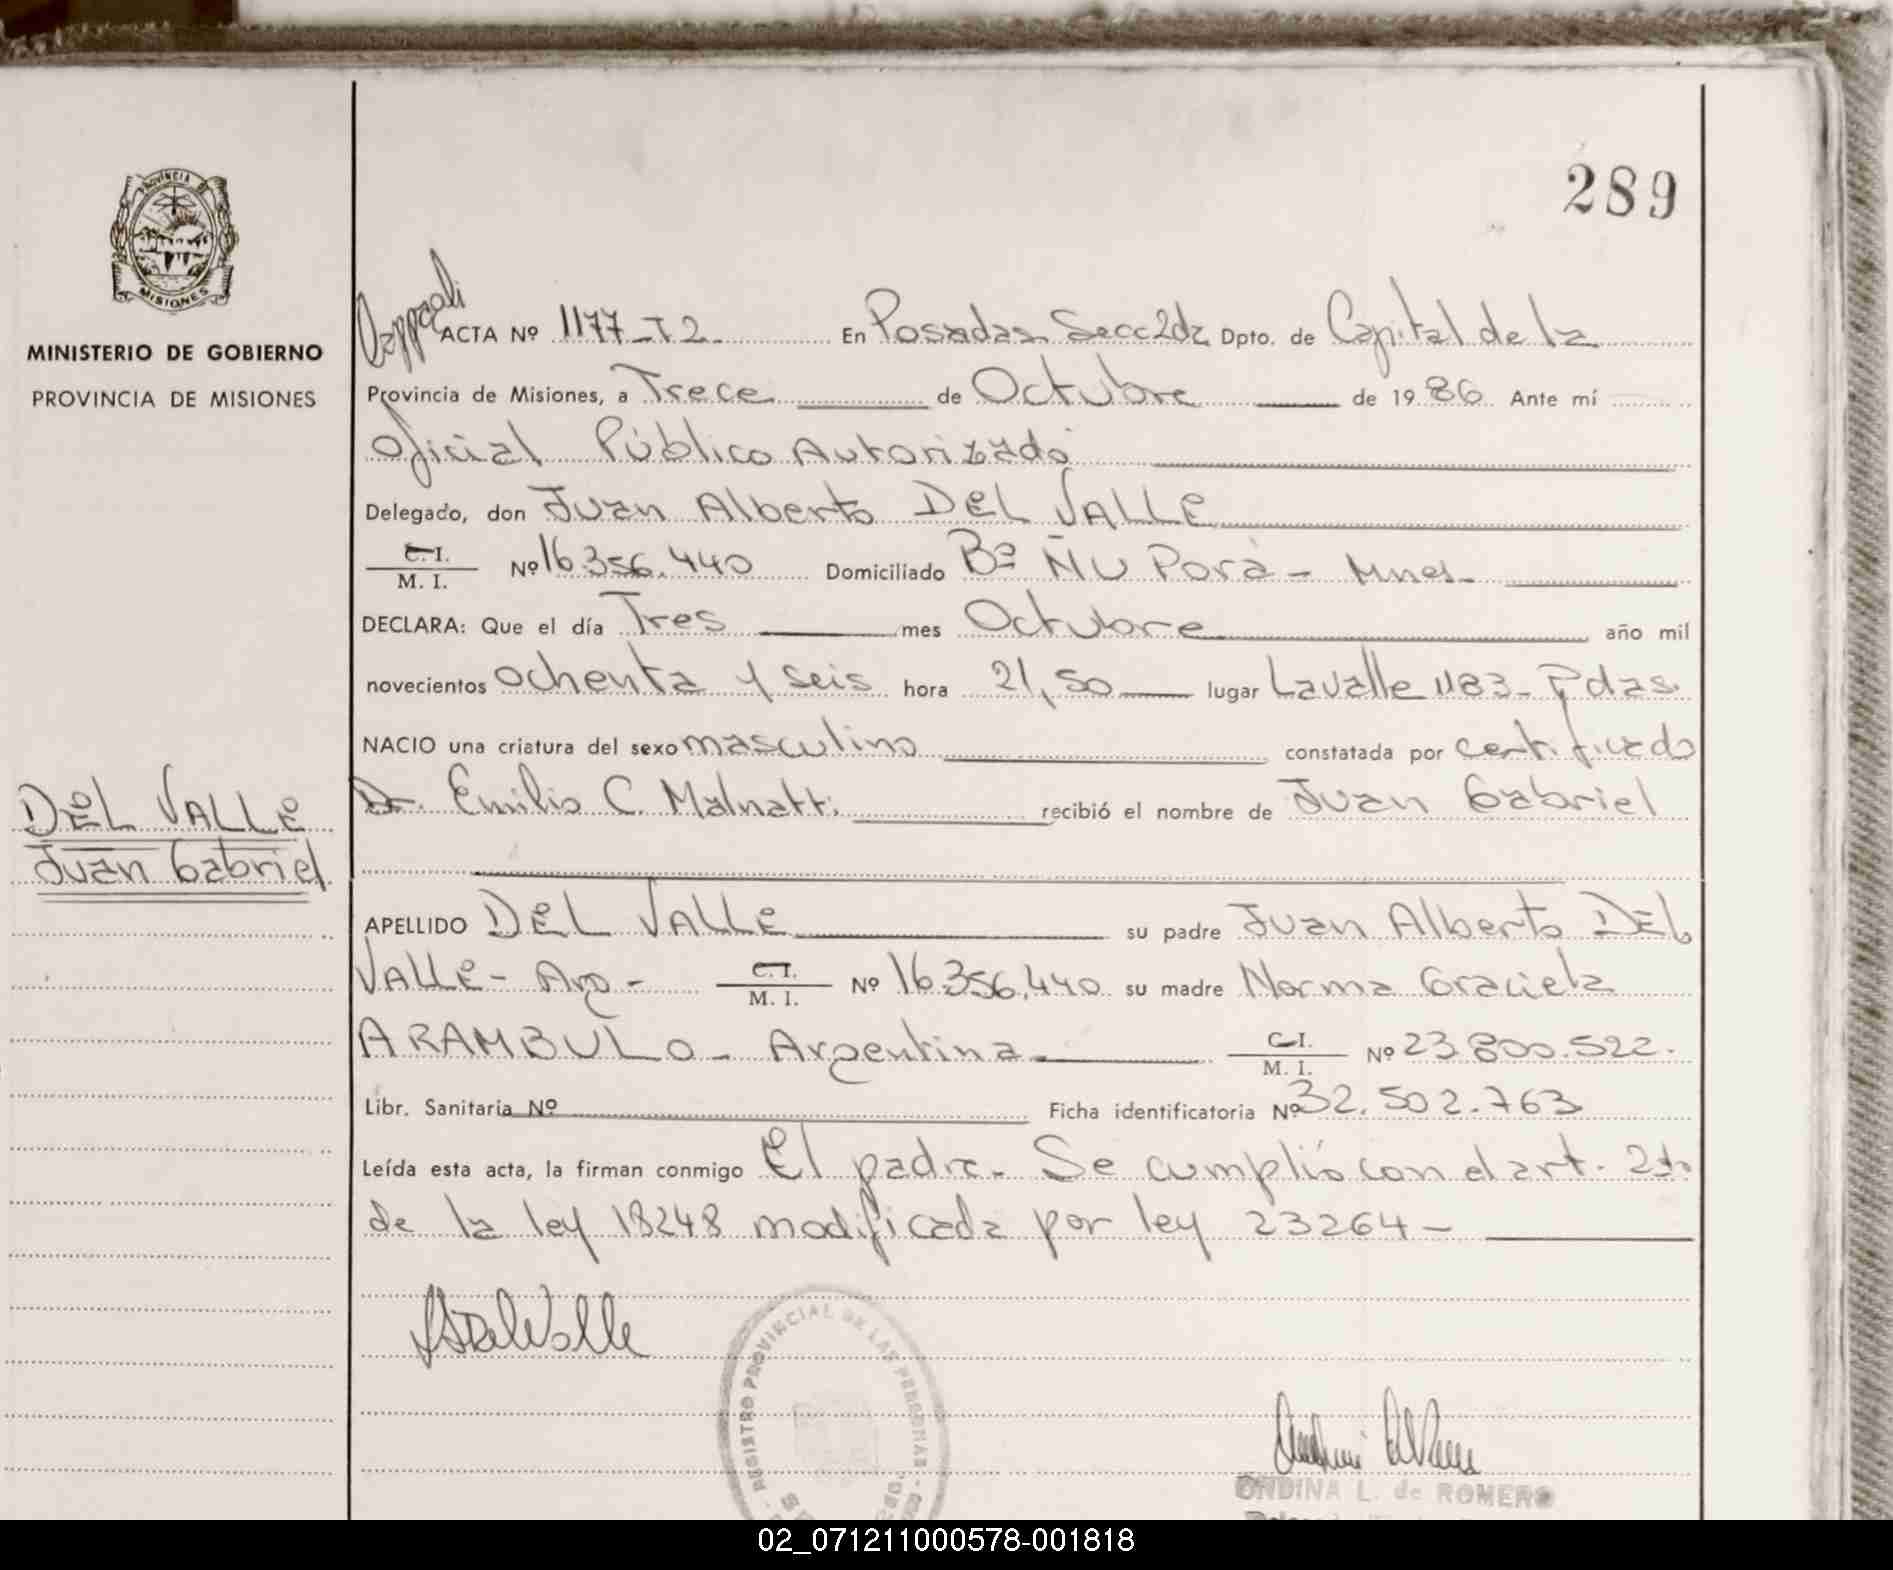 289
PROVINCIA DE
MISIONES
MINISTERIO DE GOBIERNO
PROVINCIA DE MISIONES
DEL VALLE
Juan Gabriel
ACTA Nº 1177-T2 En Posadas Secc 2da Dpto. de Capital de la
Provincia de Misiones, a Trece de Octubre de 1986 Ante mí
Oficial Público Autorizado
Delegado, don Juan Alberto DEL VALLE
C. I.
M. I. Nº 16.356.440 Domiciliado Bº ÑU Porá - Mnes.
DECLARA: Que el día Tres mes Octubre año mil
novecientos ochenta y seis hora 21,50 lugar Lavalle 1183 - Pdas.
NACIO una criatura del sexo masculino constatada por certificado
Dr. Emilio C. Malnatti recibió el nombre de Juan Gabriel
APELLIDO DEL VALLE su padre Juan Alberto DEL
VALLE - Arg - C. I.
M. I. Nº 16.356.440 su madre Norma Graciela
ARAMBULO - Argentina C. I.
M. I. Nº 23.800.522.
Libr. Sanitaria Nº Ficha identificatoria Nº 32.502.763
Leída esta acta, la firman conmigo El padre. Se cumplió con el art. 2do
de la ley 18248 modificada por ley 23264 -
REGISTRO PROVINCIAL DE LAS PERSONAS
ONDINA L. de ROMERO
02_071211000578-001818